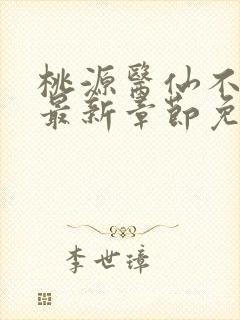 桃源醫仙不
最新章節免
李世璋